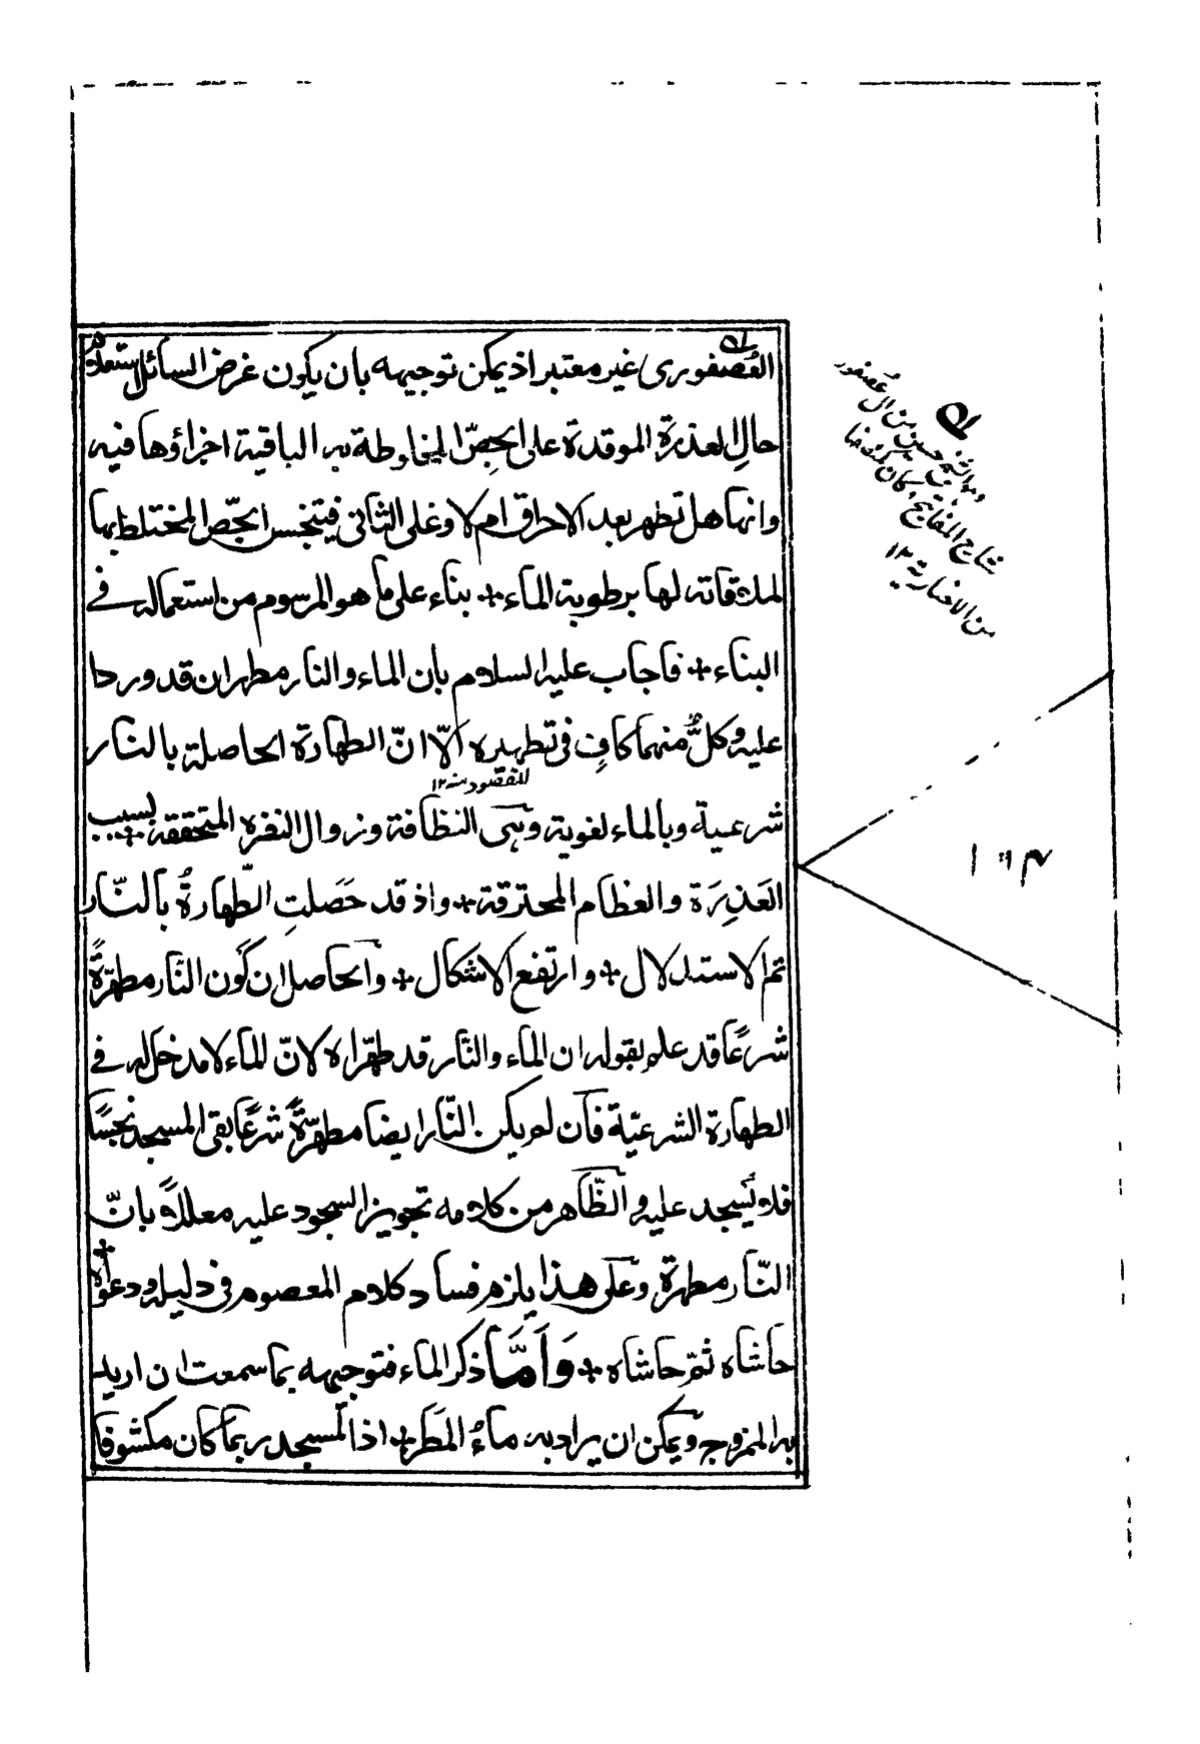 العُصفورى غير معتبر اذ يمكن توجيهه بان يكون غرض السائل استعلام
حالِ العذرة الموقدة على الجِصّ المخلوطة به الباقية اجزاؤها فيه
وانها هل تطهر بعد الاحراق ام لا وعلى الثانى فيتنجس الجصّ المختلط بها
لملاقاته لها برطوبة الماء + بناء على ما هو المرسوم من استعماله فے
البناء + فاجاب عليه السلام بان الماء والنار مطهران قد وردا
عليه وكلٌّ منهما كافٍ فى تطهيره الّا انّ الطهارة الحاصلة بالنار
شرعية وبالماء لغوية وهى النظافة وزوال النفرة المتحققة بسبب
العَذِرَة والعظام المحترقة + واذ قد حَصَلتِ الطّهارةُ بالنّار
تم الاستدلال + وارتفع الاشكال + والحاصل ان كون النّار مطهّرةً
شرعًا قد علم بقوله ان الماء والنّار قد طهّراه لانّ للماء لا مدخل له فے
الطهارة الشرعيّة فان لم يكن النّار ايضا مطهّرةً شرعًا بقى المسجد نجسًا
فلا يُسجد عليه والظّاهر من كلامه تجويز السجود عليه معللاً بانّ
النّار مطهرة وعلى هذا يلزم فساد كلام المعصوم فى دليله ودعواه +
حاشاه ثمّ حاشاه + وَاَمَّا ذكر الماء فتوجيهه بما سمعت ان اريد
به الممزوج ويمكن ان يراد به ماءُ المَطَر + اذ المسجد ربما كان مكشوفا
للمقصود منه ١٢
وهو الشيخ حسين من ال عُصفور
شارح المفاتيح كان
من الاخبارية ١٢